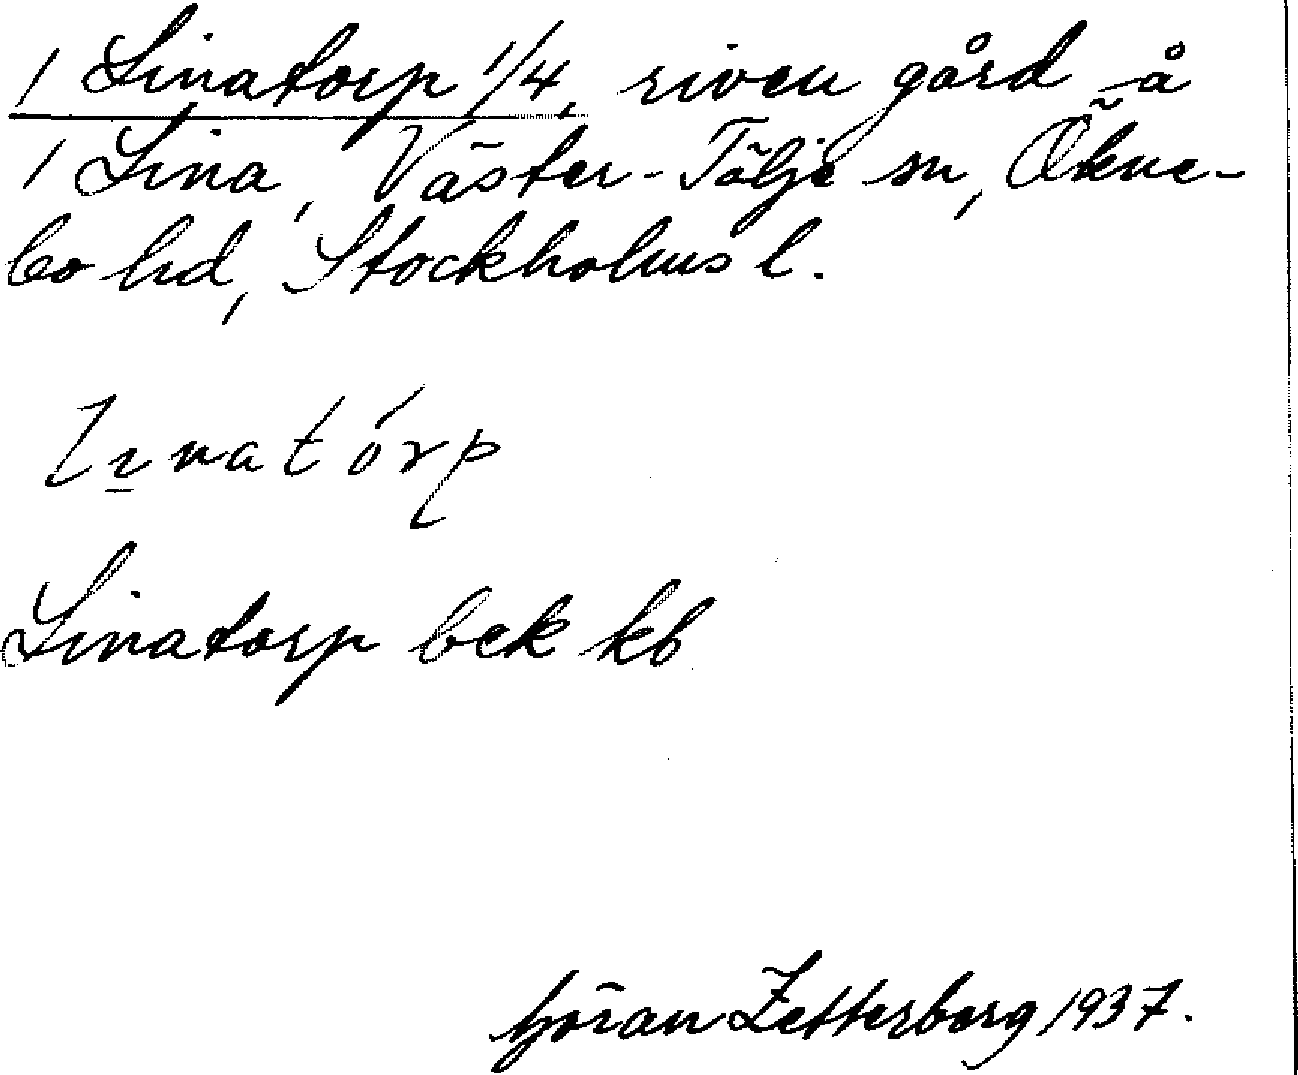 1 Linatorp 1/4, riven gård å
1 Lina, Väster-Tälje sn, Ökne-
bo hd, Stockholms l.
Linatorp bek kb
Göran Zetterberg 1937.